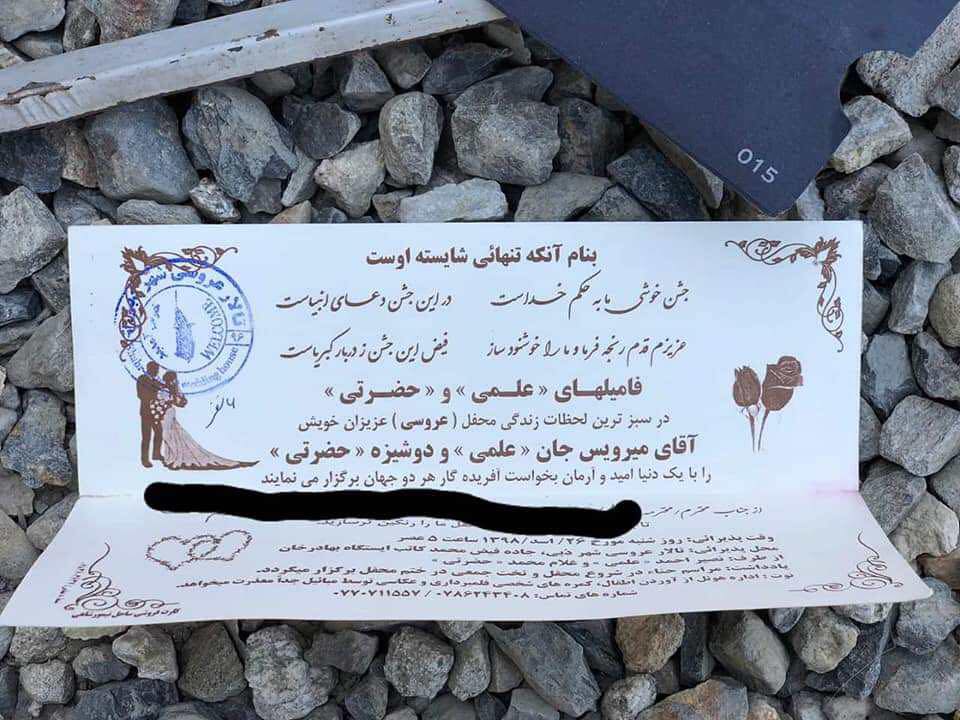 015
بنام آنکه تنهائی شایسته اوست
جشن خوشی ما به حکم خداست در این جشن دعای انبیاست
عزیزم قدم رنجه فرما و ما را خوشنود ساز فیض این جشن ز دربار کبریاست
فامیلهای « علمی » و « حضرتی »
در سبز ترین لحظات زندگی محفل ( عروسی ) عزیزان خویش
آقای میرویس جان « علمی » و دوشیزه « حضرتی »
را با یک دنیا امید و آرمان بخواست آفریده گار هر دو جهان برگزار می نمایند
از جناب محترم / محترمه
ما را رنگین ترسازید
وقت پذیرائی: روز شنبه مورخ ۲۶ / اسد / ۱۳۹۸ ساعت ۵ عصر
محل پذیرائی: تالار عروسی شهر دبی، جاده فیض محمد کاتب ایستگاه بهادرخان
از طرف: نصیر احمد « علمی » و غلام محمد « حضرتی »
یادداشت: مراسم نکاح در شروع محفل و تخت جمعی در ختم محفل برگزار میگردد.
نوت : اداره هوتل از آوردن اطفال، کمره های شخصی فلمبرداری و عکاسی توسط مبائیل جداً معذرت میخواهد.
شماره های تماس: ۰۷۸۶۲۴۳۴۰۸ / ۰۷۷۰۷۱۱۵۵۷
تالار عروسی شهر
WELCOME
wedding house
۶ نفر